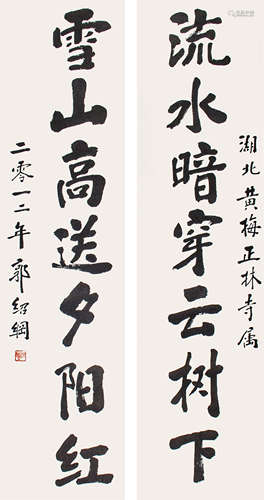 流水暗穿云树下
湖北黄梅正林寺属
雪山高送夕阳红
二零一二年郭绍纲